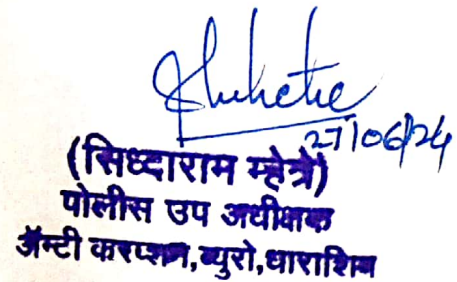 27/06/24
(सिध्दाराम म्हेत्रे)
पोलीस उप अधीक्षक
ॲन्टी करप्शन,ब्युरो,धाराशिव